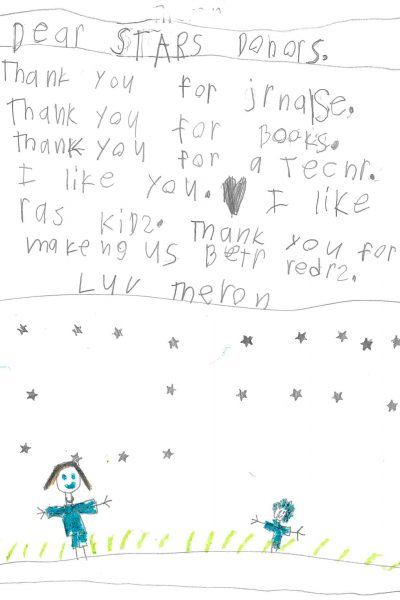 Dear STARS Donors.
Thank you for jrnalse.
Thank you for Books.
Thank you for a Techr.
I like you. I like
ras KiDz. Thank you for
makeng us Betr redrz.
Luv meron